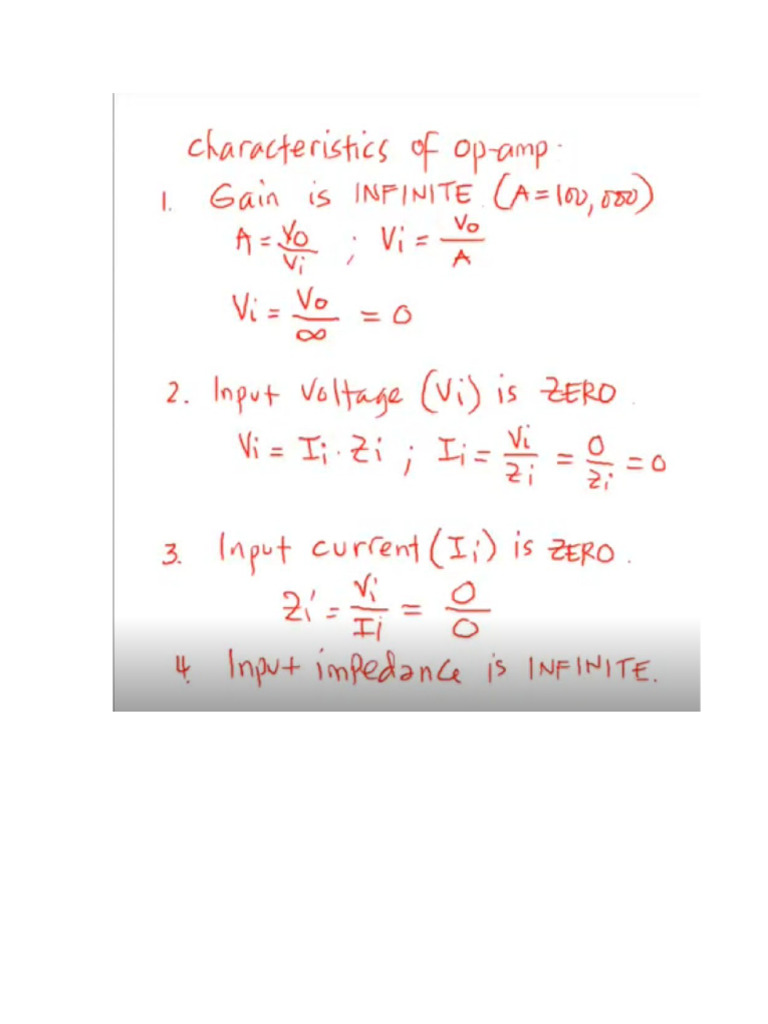 characteristics of op-amp.
1. Gain is INFINITE (A=100,000)
A = Vo/Vi ; Vi = Vo/A
Vi = Vo/∞ = 0
2. Input Voltage (Vi) is ZERO.
Vi = Ii · Zi ; Ii = Vi/Zi = 0/Zi = 0
3. Input current (Ii) is ZERO.
Zi = Vi/Ii = 0/0
4. Input impedance is INFINITE.